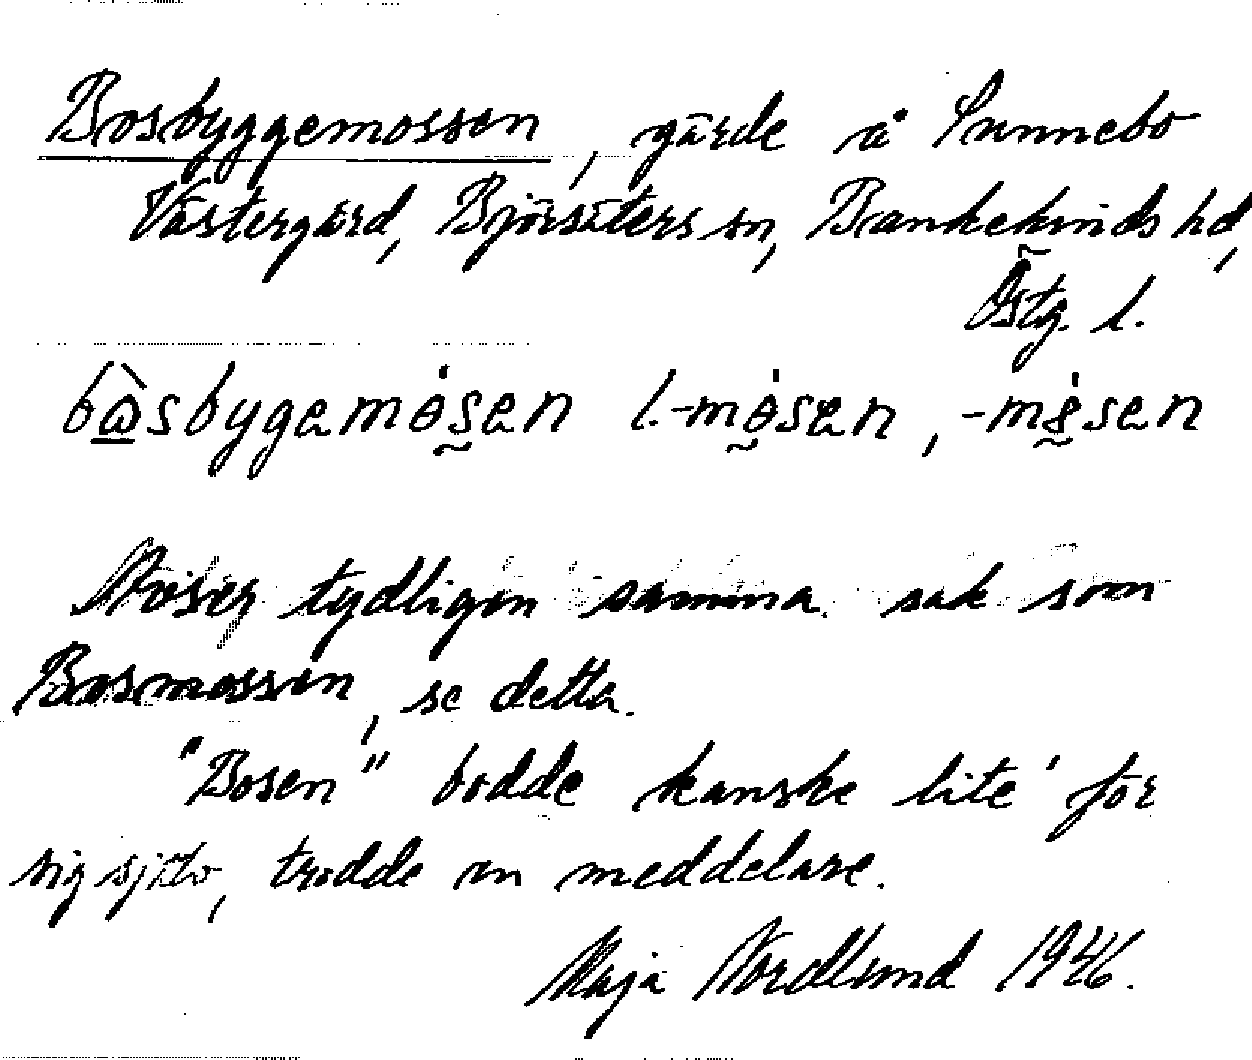 Bosbyggemossen, gärde å Sunnebo
Västergård, Björsäters sn, Bankekinds hd,
Östg. l.
bɷ̀sbygemósen l. -mósen, -mésen
Avser tydligen samma sak som
Bosmossen, se detta.
"Bosen" bodde kanske lite' för
sig själv, trodde en meddelare.
Maja Nordlund 1946.